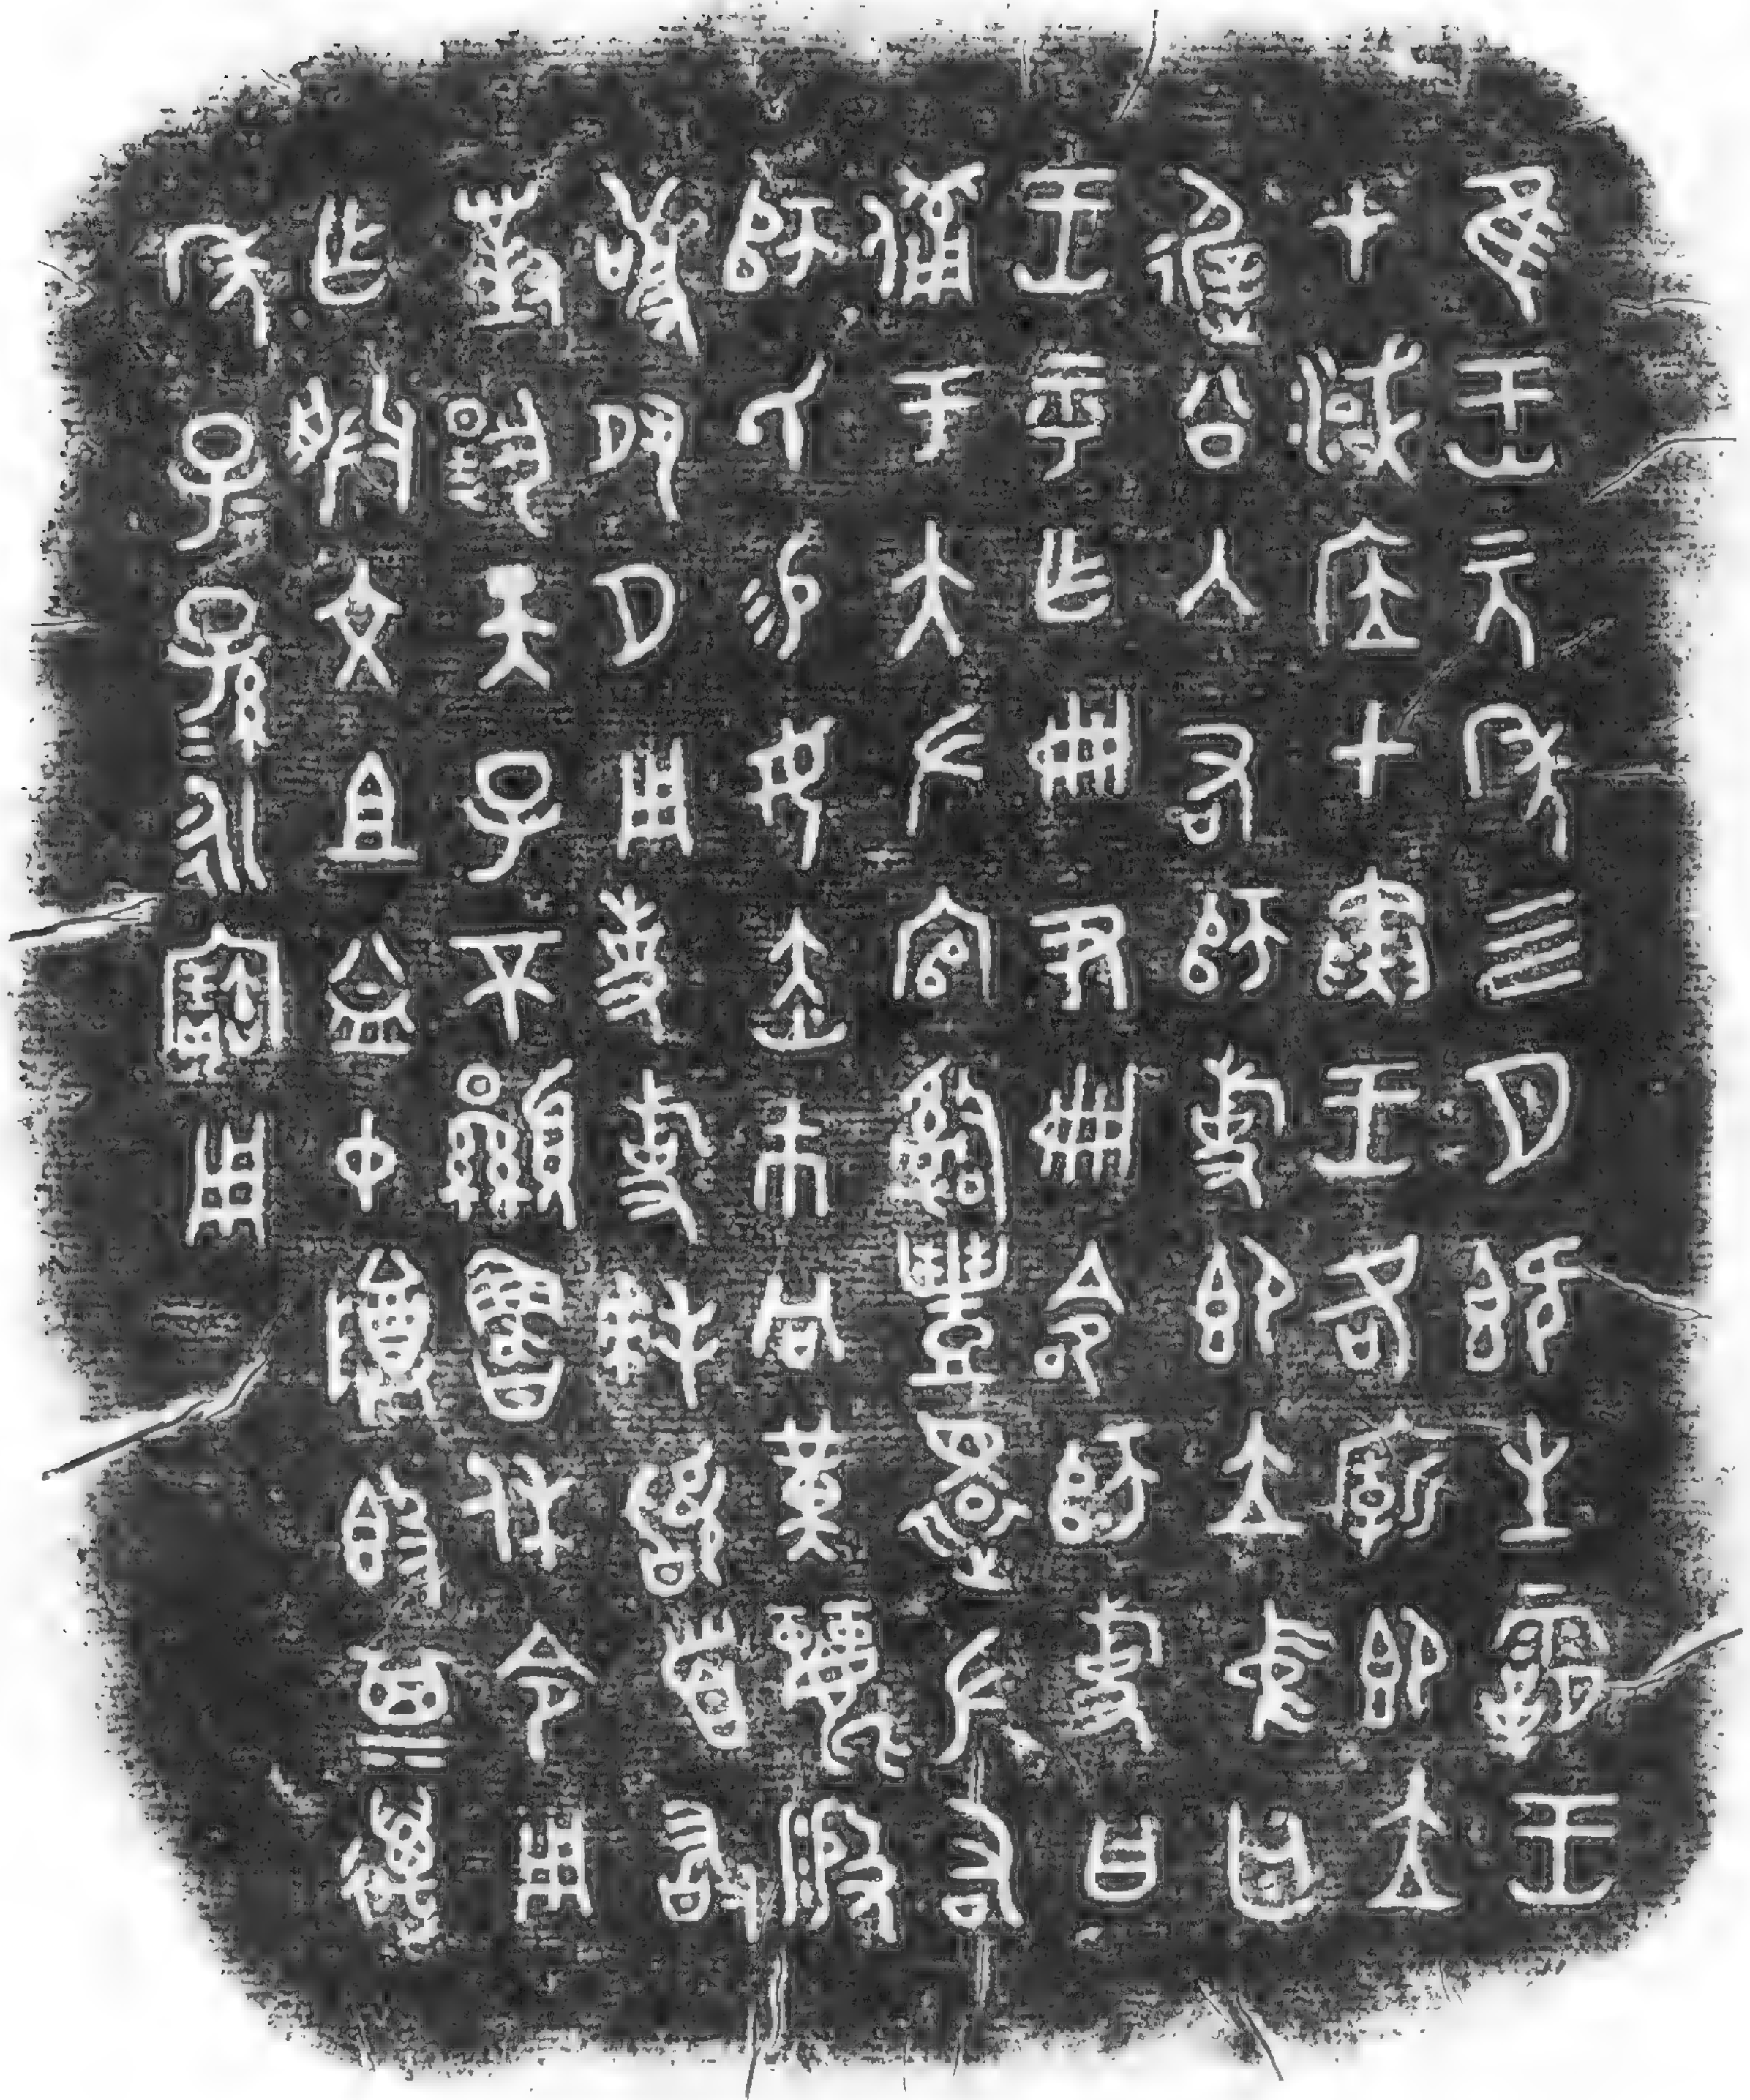 隹王元年四月既生霸王
才淢居甲寅王各廟即立
遲公入右師旋即立中廷
王乎乍冊尹冊命師旋曰
備于大左官𤔲豐還左又
師氏易女赤巿冋黃麗般
敬夙夕用事旋拜𩒨首敢
對揚天子不顯魯休令用
乍朕文且益中尊簋其萬
年子=孫=永寶用